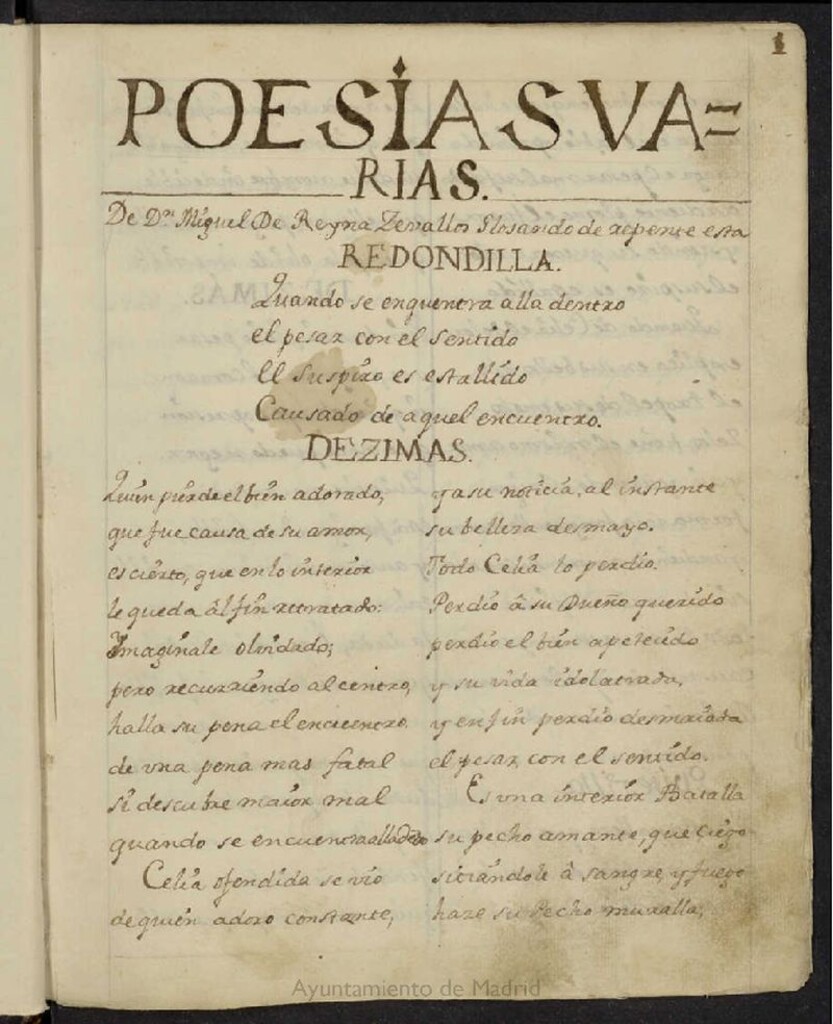 1
POESIAS VA=
RIAS.
De Dn. Miguel De Reyna Zevallos Glosando de repente esta
REDONDILLA.
Quando se enquentra alla dentro
el pesar con el sentido
El suspiro es estallido
Causado de aquel encuentro.
DEZIMAS.
Quien pierde el bien adorado,
que fue causa de su amor,
es cierto, que en lo interior
le queda âl fin retratado:
Ymaginale olvidado;
pero recurriendo al centro,
halla su pena el encuentro
de vna pena mas fatal
si descubre maior mal
quando se encuentra alla dentro
Celia ofendida se vio
de quien adoro constante,
y a su noticia, al instante
su belleza desmayo.
Todo Celia lo perdio.
Perdio â su Dueño querido
perdio el bien apetecido
y su vida idolatrada,
y en fin perdio desmaiada
el pesar, con el sentido.
Es vna interior Batalla
su pecho amante, que ciego
sitiandole â sangre, y fuego
haze su Pecho muralla;
Ayuntamiento de Madrid